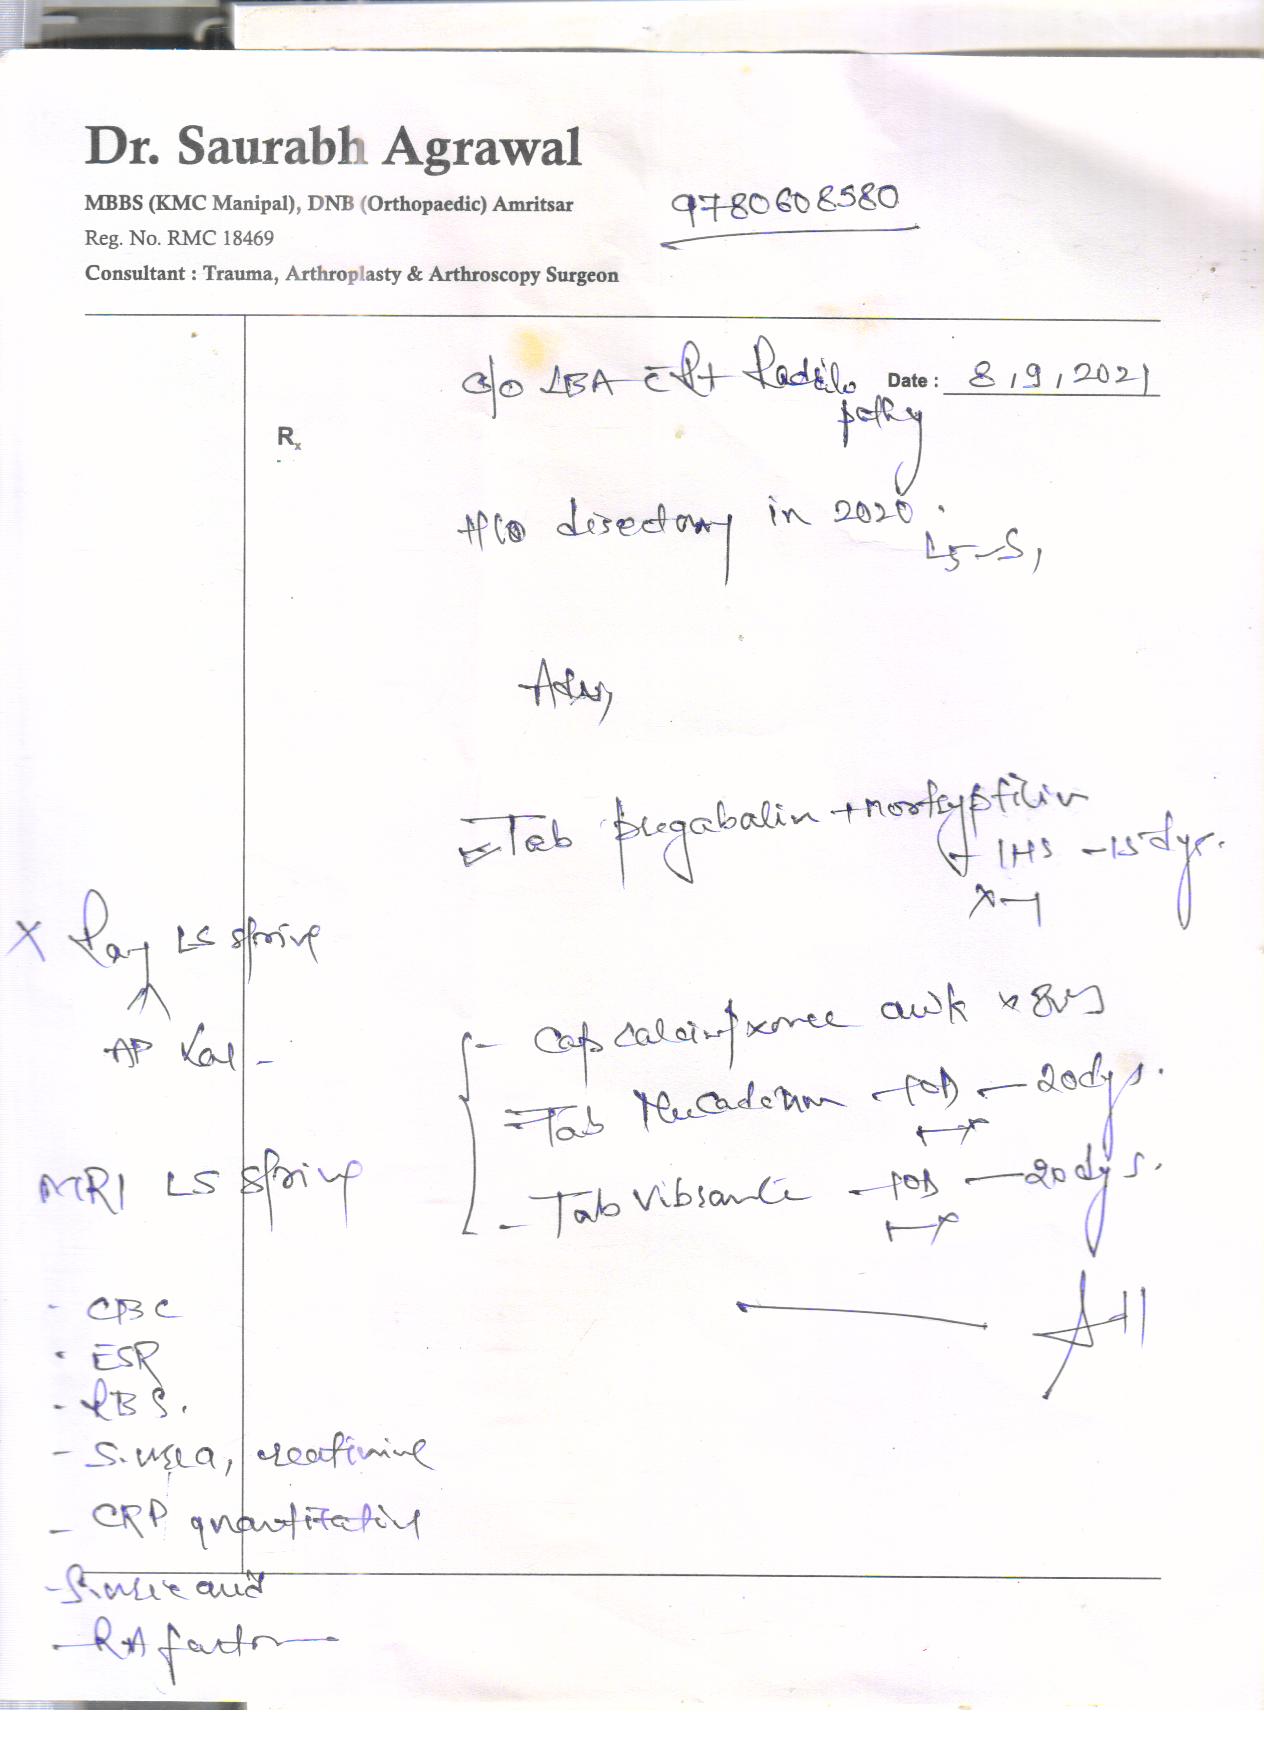 Dr. Saurabh Agrawal
MBBS (KMC Manipal), DNB (Orthopaedic) Amritsar
9780608580
Reg. No. RMC 18469
Consultant : Trauma, Arthroplasty & Arthroscopy Surgeon
Date : 8/9/2021
c/o LBA c̄ Rt Radiculo
pathy
Rx
H/O discectomy in 2020.
L5-S1
Adv,
- Tab pregabalin + nortryptilin
1HS - 15 dys.
X Ray LS spine
AP Lat -
- Cap calcin
- Tab - 1OD - 20 dys.
MRI LS spine
- Tab - 1OD - 20 dys.
- CBC
- ESR
- RBS.
- S. urea, creatinine
- CRP quantitative
- S. uric acid
- RA factor